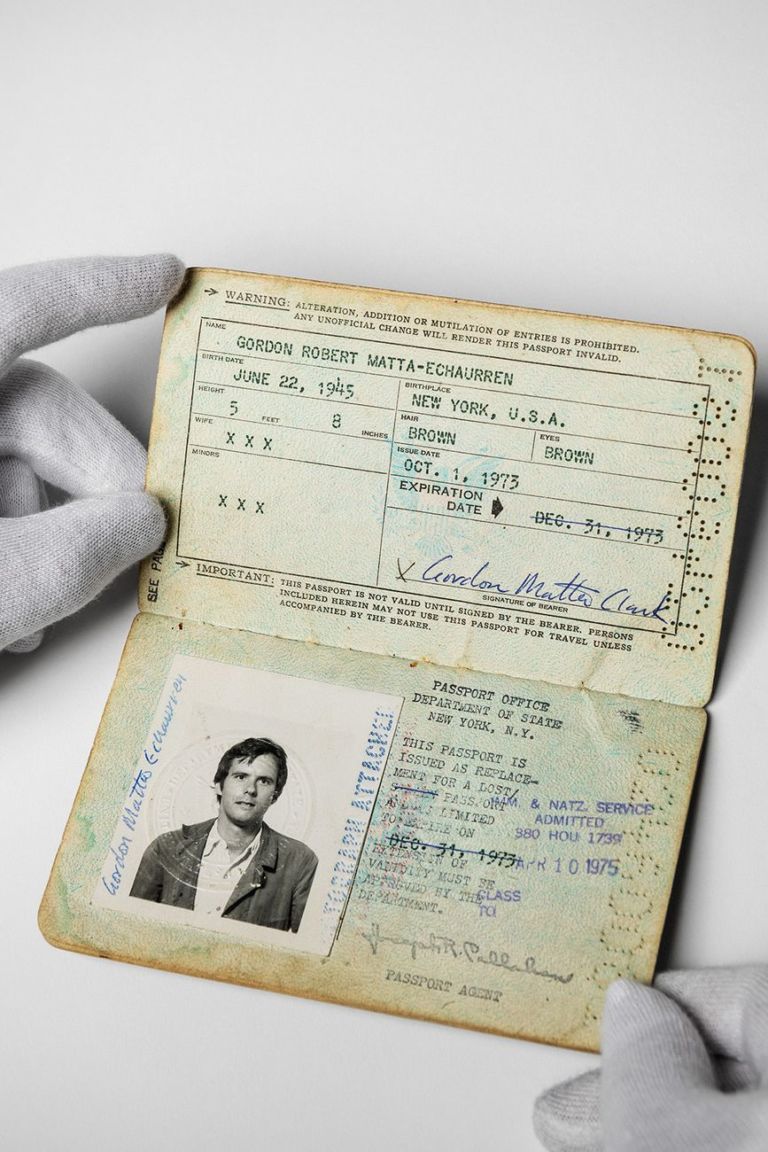 → WARNING: ALTERATION, ADDITION OR MUTILATION OF ENTRIES IS PROHIBITED.
ANY UNOFFICIAL CHANGE WILL RENDER THIS PASSPORT INVALID.
NAME
GORDON ROBERT MATTA-ECHAURREN
BIRTH DATE
JUNE 22, 1945
BIRTHPLACE
NEW YORK, U.S.A.
HEIGHT
5 FEET 8 INCHES
HAIR
BROWN
EYES
BROWN
WIFE
X X X
ISSUE DATE
OCT. 1, 1973
MINORS
X X X
EXPIRATION
DATE
DEC. 31, 1973
X Gordon Matta Clark
SIGNATURE OF BEARER
SEE PAG
→ IMPORTANT: THIS PASSPORT IS NOT VALID UNTIL SIGNED BY THE BEARER. PERSONS
INCLUDED HEREIN MAY NOT USE THIS PASSPORT FOR TRAVEL UNLESS
ACCOMPANIED BY THE BEARER.
Gordon Matta Echaurren
PHOTOGRAPH ATTACHED
PASSPORT OFFICE
DEPARTMENT OF STATE
NEW YORK, N.Y.
THIS PASSPORT IS
ISSUED AS REPLACE-
MENT FOR A LOST/
PASSPORT
AND IS LIMITED
TO EXPIRE ON
DEC. 31, 1973.
EXTENSION OF
VALIDITY MUST BE
APPROVED BY THE
DEPARTMENT.
IMM. & NATZ. SERVICE
ADMITTED
380 HOU 1739
APR 10 1975
CLASS
TO
PASSPORT AGENT